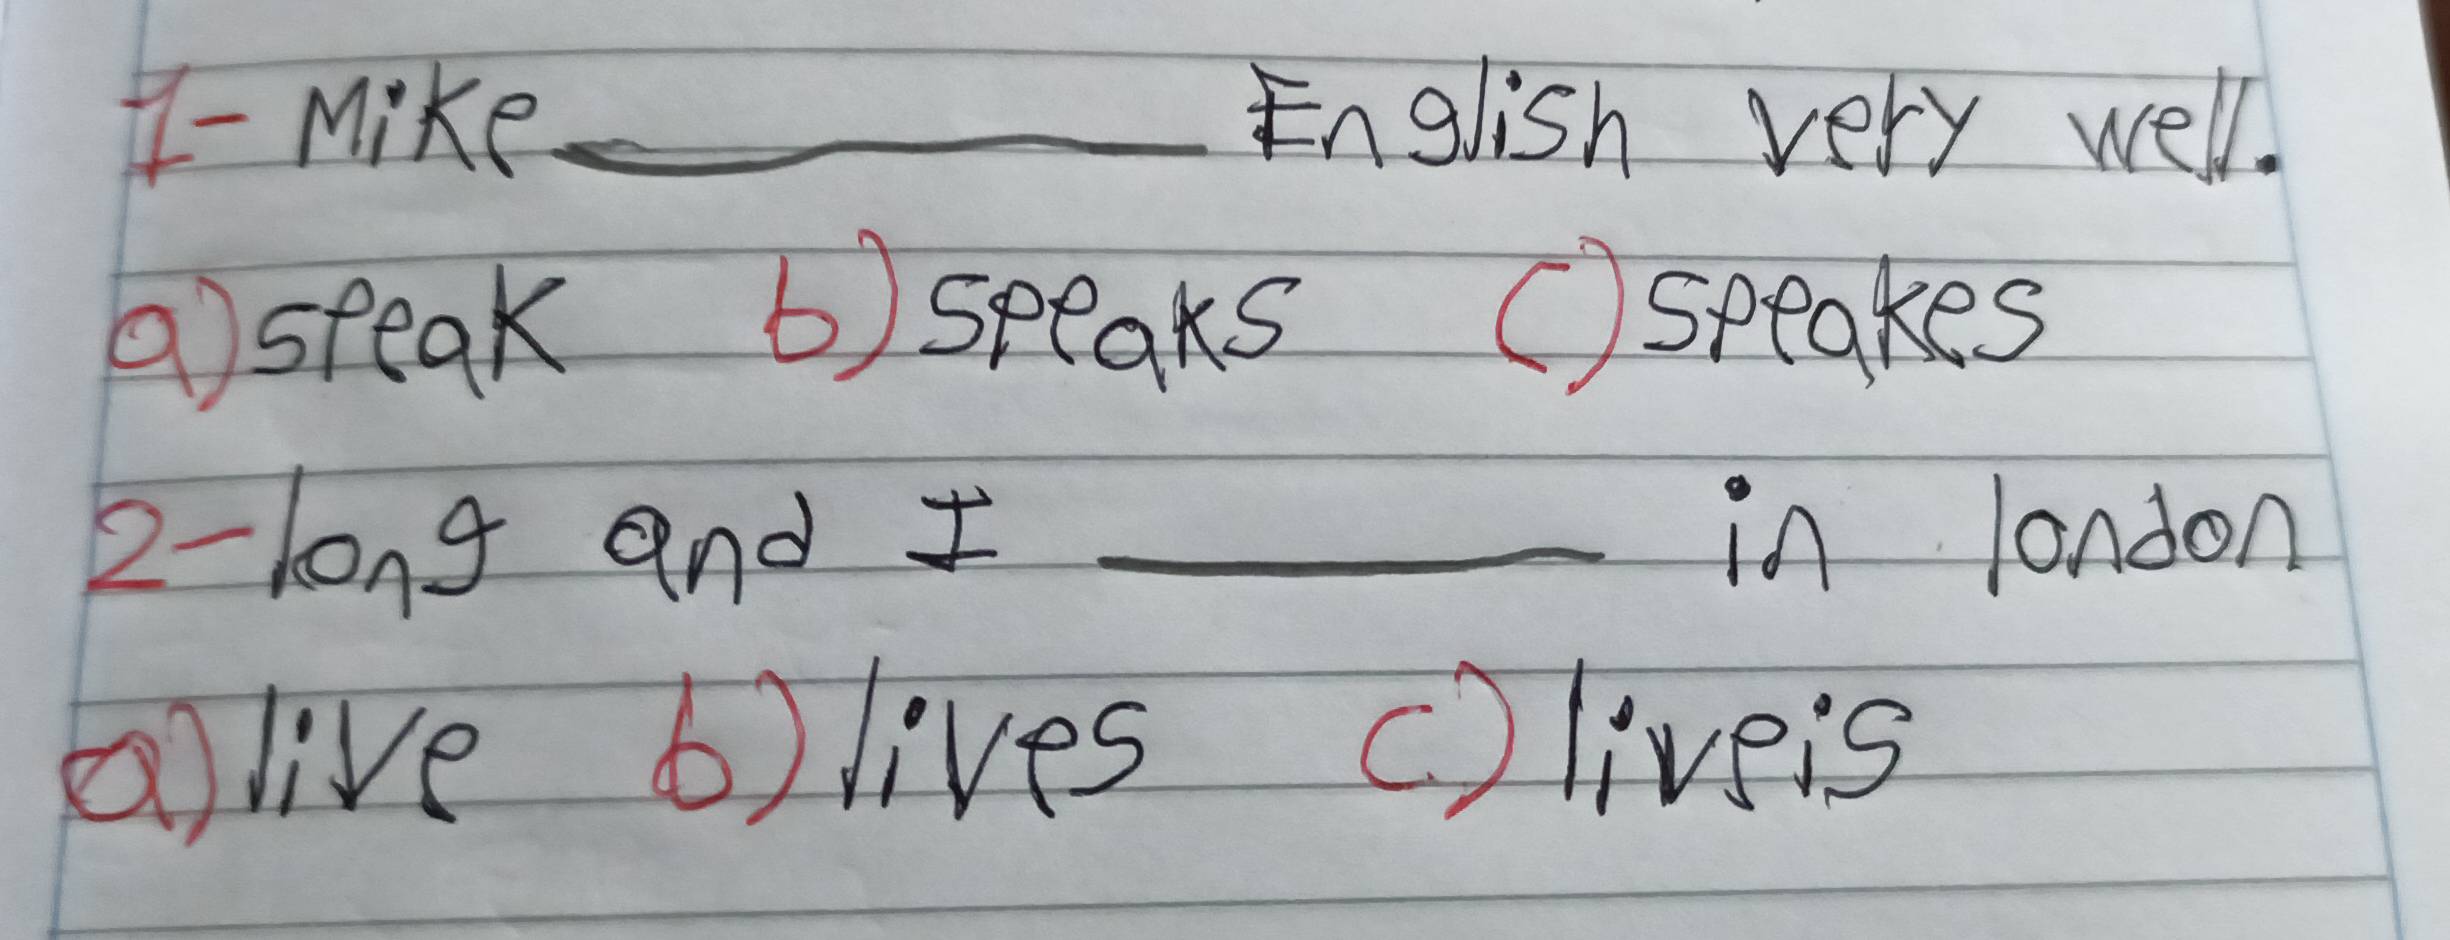 1- Mike ________ English very well.
a) speak b) speaks c) speakes
2- long and I ________ in london
a) live b) lives c) liveis